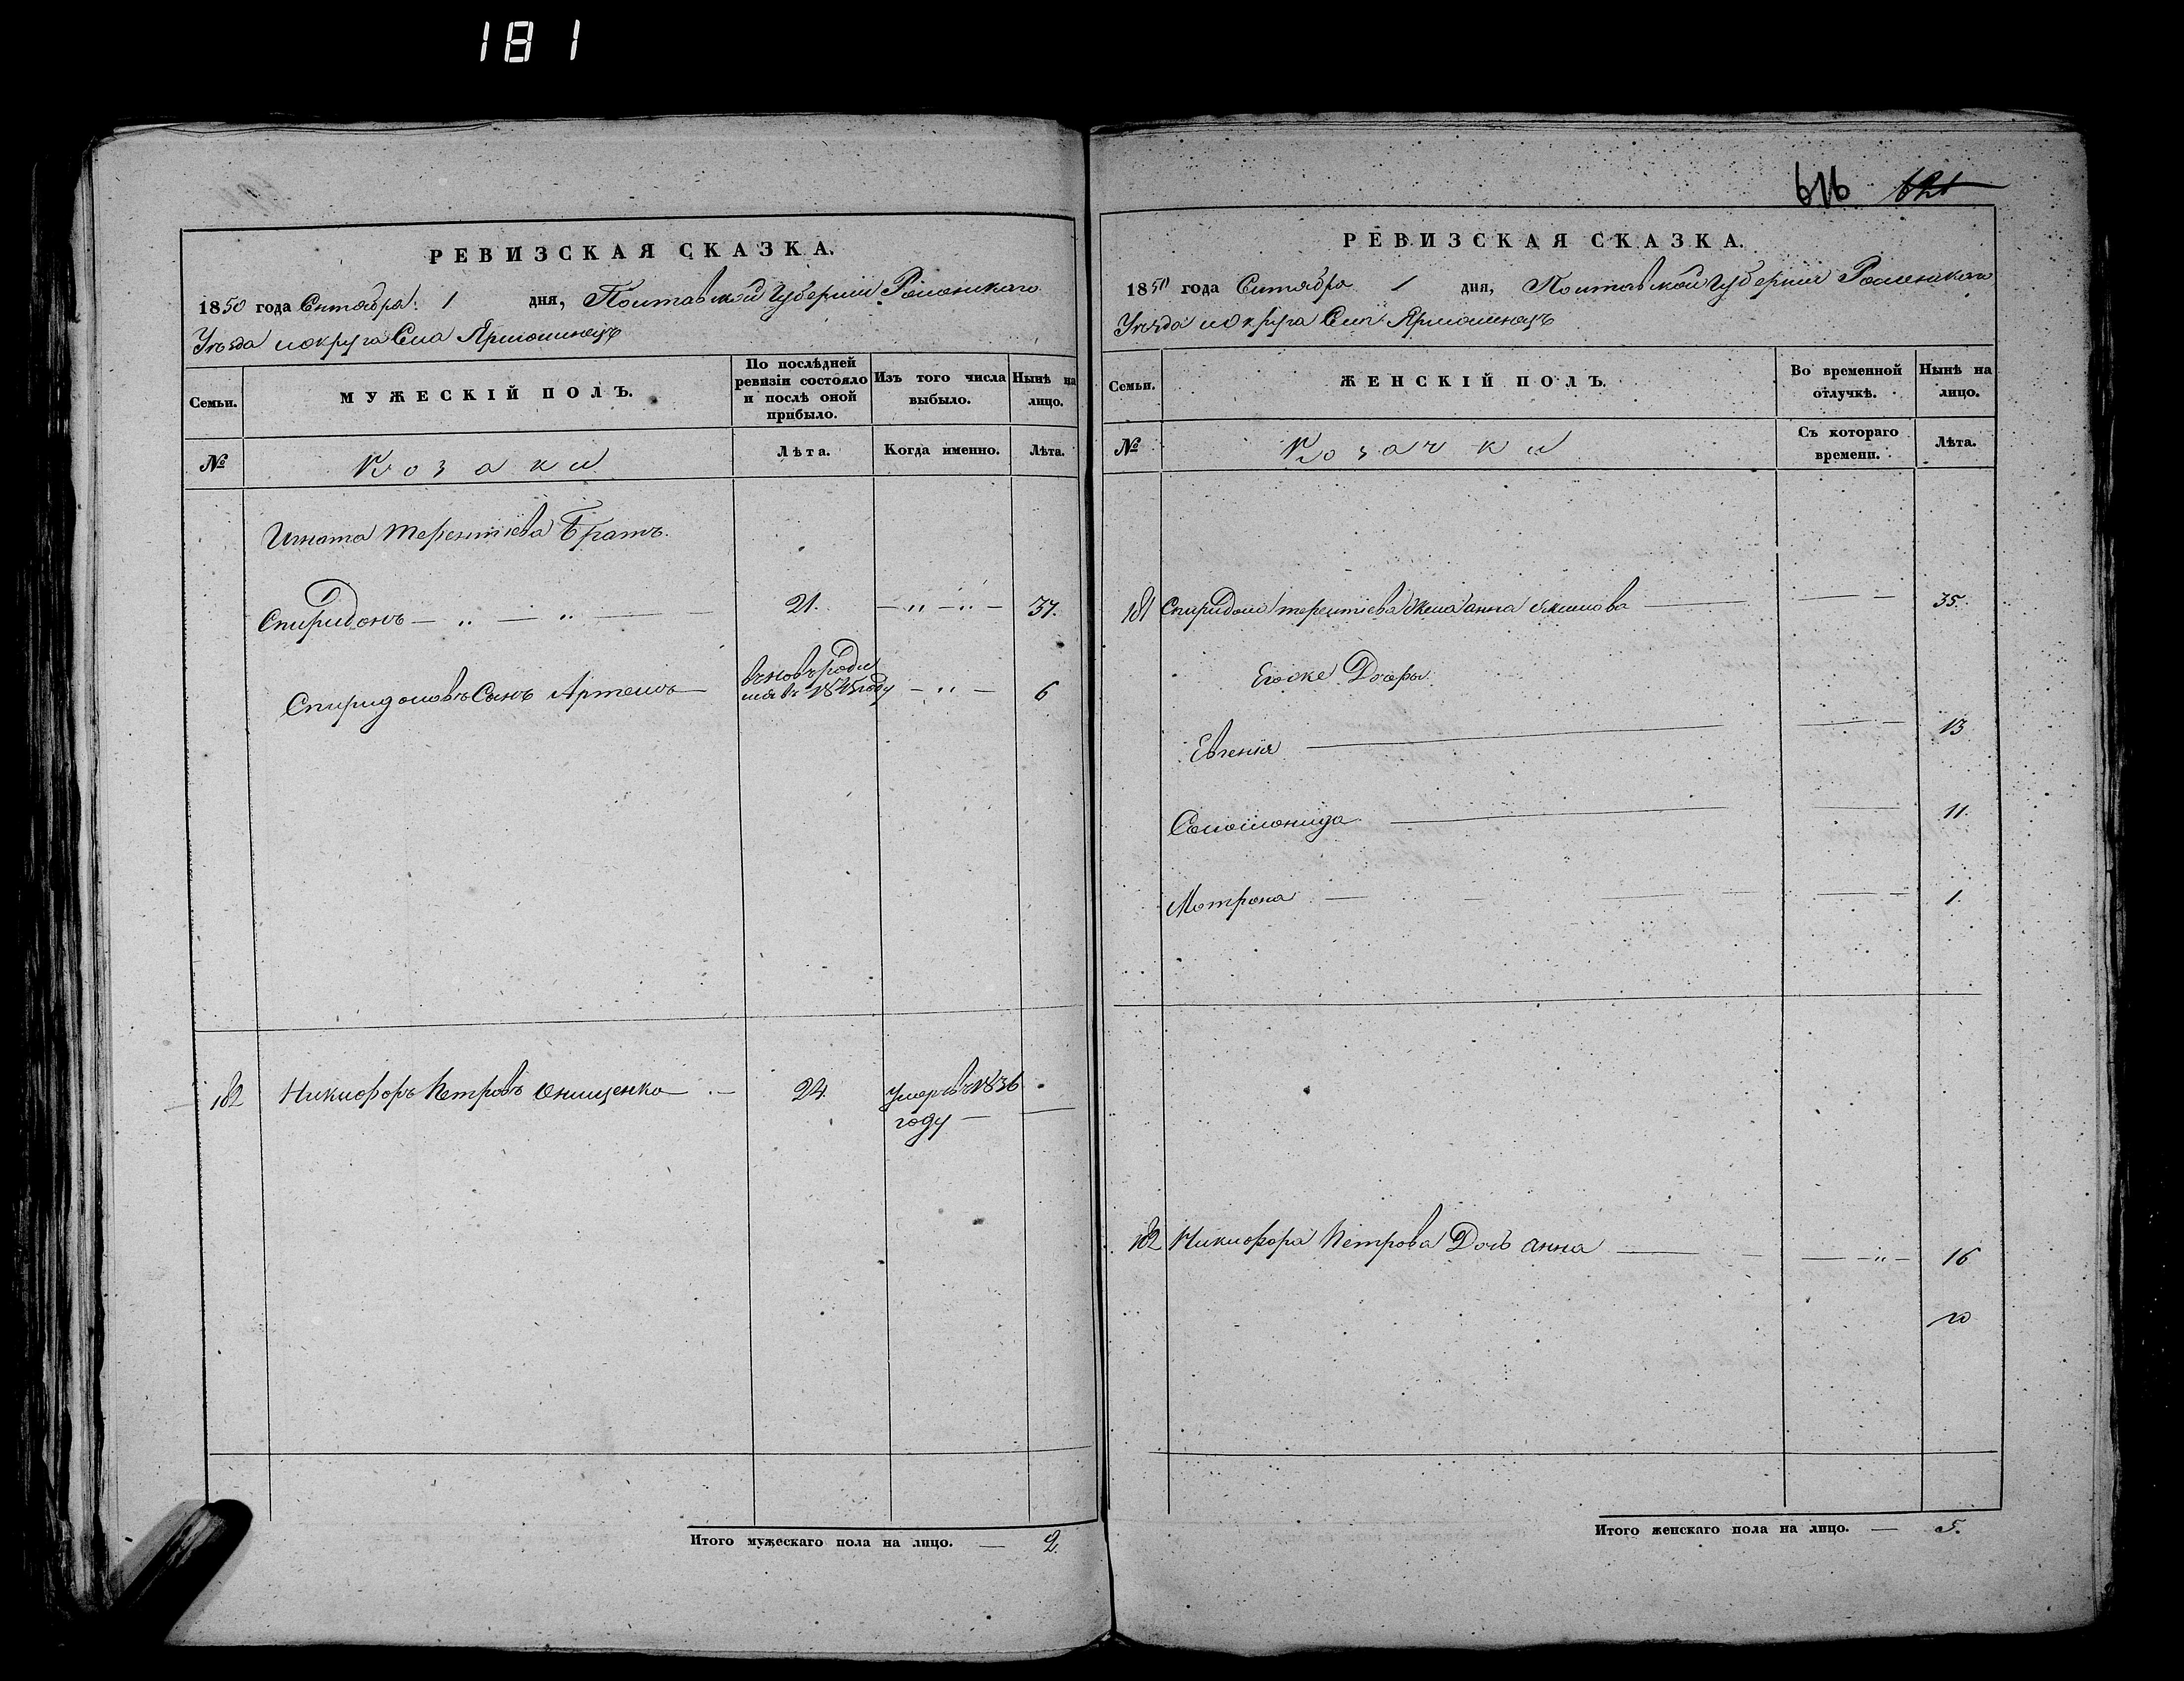 181
616 621
РЕВИЗСКАЯ СКАЗКА.
1850 года Сентября 1 дня, Полтавской Губернии Роменского
Уезда и округа Села Ярмолинец
Семьи.
МУЖЕСКІЙ ПОЛЪ.
По послѣдней ревизіи состояло и послѣ оной прибыло.
Изъ того числа выбыло.
Нынѣ на лицо.
№
Козаки
Лѣта.
Когда именно.
Лѣта.
Игната Терентіева Братъ
Спиридонъ — „ — „ — 21. — „ — „ — 37.
Спиридоновъ Сынъ Артемъ — вновь роди
лся въ 1845 году — „ — 6
182 Никифоръ Петровъ Онищенко — 24. Умеръ въ 1836
году —
Итого мужескаго пола на лицо. — 2.
РЕВИЗСКАЯ СКАЗКА.
1850 года Сентября 1 дня, Полтавской Губернии Роменского
Уезда и округа Села Ярмолинец
Семьи.
ЖЕНСКІЙ ПОЛЪ.
Во временной отлучкѣ.
Нынѣ на лицо.
№
Козачки
Съ котораго времени.
Лѣта.
181 Спиридона Терентіева Жена Анна Якимова — 35.
Егоже Дочеры
Евгенія — 13
Соломонида — 11.
Мотрона — 1.
182 Никифора Петрова Дочь Анна — „ — 16
Итого женскаго пола на лицо. — 5.